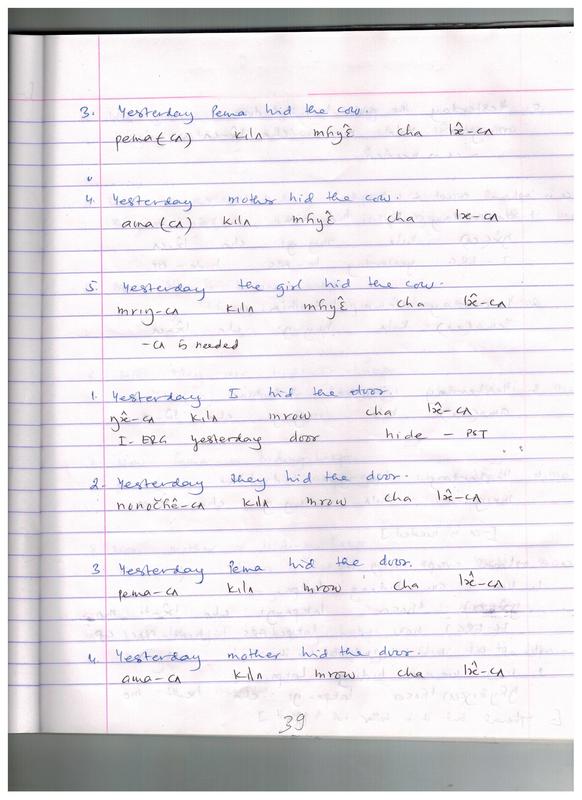 3. Yesterday Pema hid the cow.
pema(cʌ) kilʌ mɦyɛ̂ cha lx̂-cʌ
4. Yesterday mother hid the cow.
ama(cʌ) kilʌ mɦyɛ̂ cha lx-cʌ
5. Yesterday the girl hid the cow.
mriŋ-cʌ kilʌ mɦyɛ̂ cha lx̂-cʌ
-cʌ is needed
1. Yesterday I hid the door.
ŋx̂-cʌ kilʌ mrow cha lx̂-cʌ
I-ERG yesterday door hide - PST
2. Yesterday they hid the door.
kilʌ mrow cha lx̂-cʌ
3 Yesterday Pema hid the door.
pema-cʌ kilʌ mrow cha lx̂-cʌ
4. Yesterday mother hid the door.
ama-cʌ kilʌ mrow cha lx̂-cʌ
39